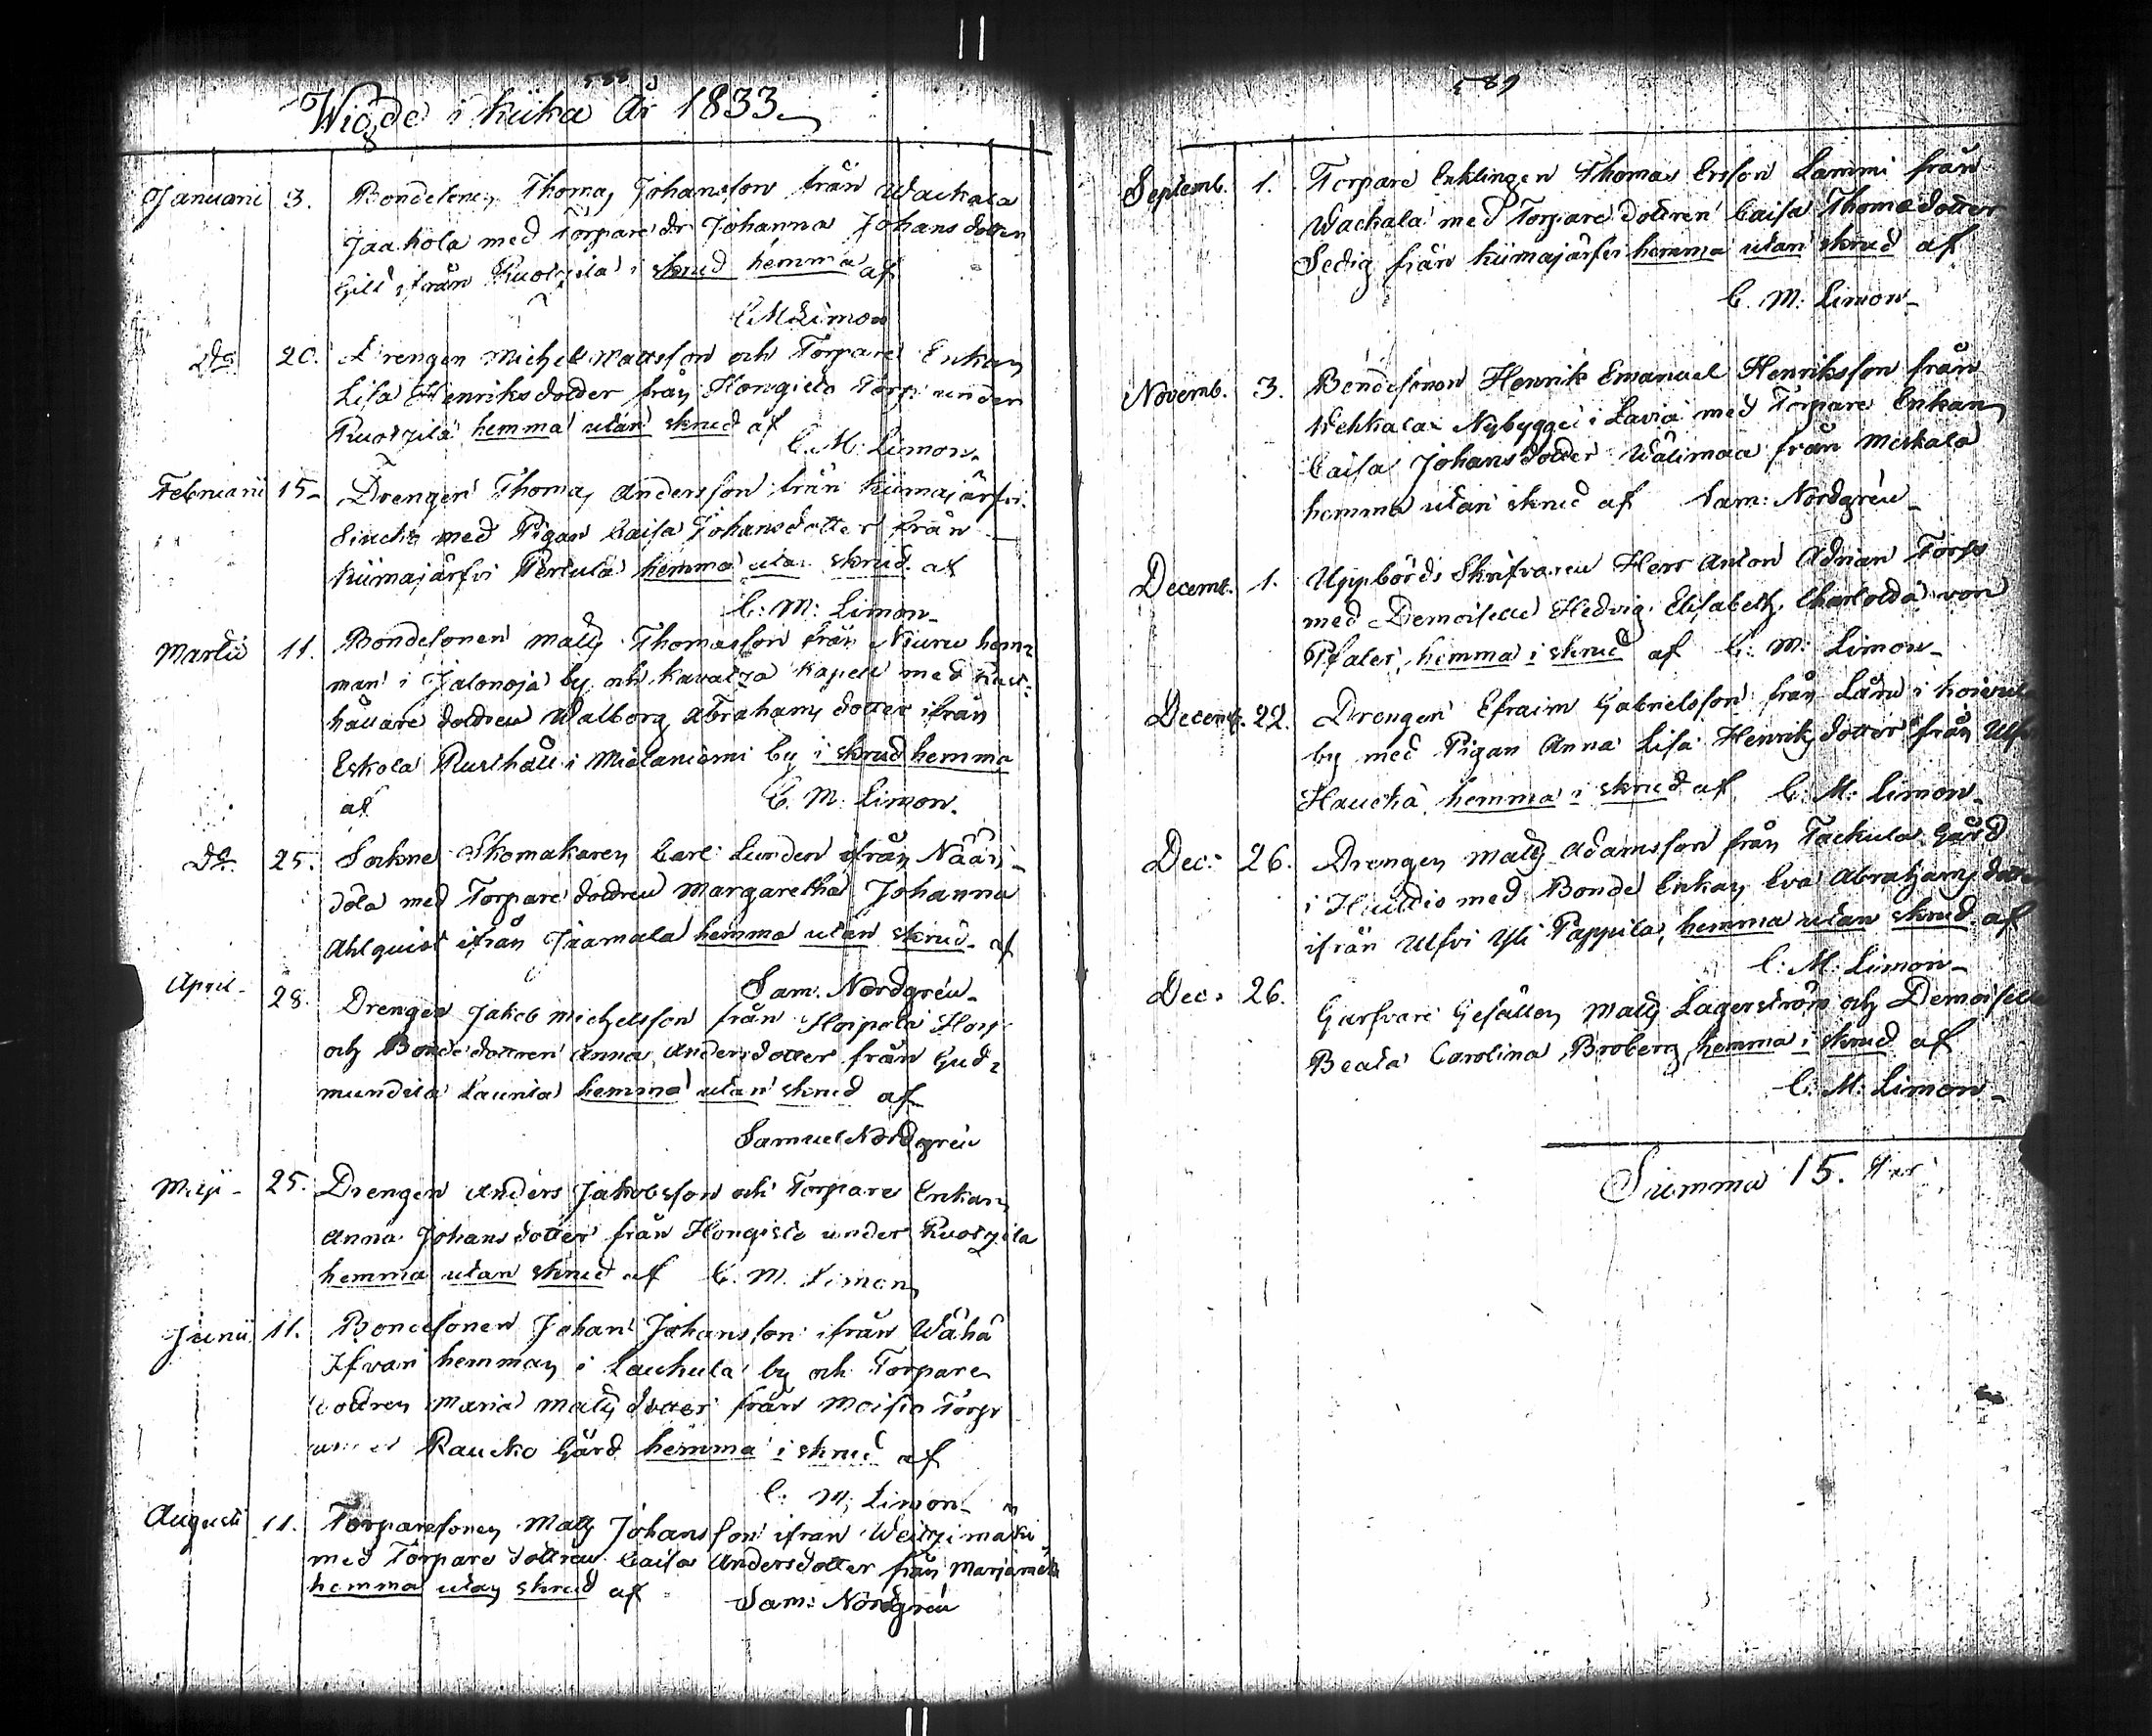 588
Wigde i Kiika År 1833
Januarii 3. Bondesonen Thomas Johansson från Wackala
Jaakola med Torpare dr Johanna Johansdotter
Gill ifrån Ruotzila i skrud hemma af
C M Limon
Do 20. Drengen Michel Mattsson och Torpare Enkan
Lisa Henriksdotter från Hongisto Torp under
Ruotzila hemma utan skrud af
C. M. Limon.
Februarii 15 Drengen Thomas Andersson från Kiimajärfvi
med Pigan Caisa Johansdotter från
Kiimajärfvi Pertula hemma utan skrud af
C: M: Limon
Martii 11. Bondesonen Matts Thomasson från Niuru hem=
man i Jalonoja by och Kavatza Kapell med Rust=
hållare dottren Walborg Abrahams dotter ifrån
Eskola Rusthåll i Meilaniemi by i skrud hemma
af C. M. Limon.
Do 25. Sockne Skomakaren Carl Lunden ifrån Näätz-
dola med Torpare dottren Margaretha Johanna
Ahlquist ifrån Jaamala hemma utan skrud af
Sam. Nordgrén
April 28. Drengen Jakob Michelsson från Hoipola
och Bonde dottren Anna Andersdotter från Gud=
mundila Launia hemma utan skrud af
Samuel Nordgrén
Maji 25. Drengen Anders Jakobsson och Torpare Enkan
Anna Johansdotter från Hongisto under Ruotzila
hemma utan skrud af C. M. Limon
Junii 11. Bondesonen Johan Johansson ifrån Wähä
Ifvari hemman i Laukula by och Torpare
dottren Maria Matts dotter från Moisio Torp
under Raucko Gård hemma i skrud af
C: M: Limon
Augusti 11. Torparesonen Matts Johansson ifrån Weitzimäki
med Torpare dottren Caisa Andersdotter från Marjamäki
hemma utan skrud af Sam: Nordgrén
589
Septemb. 1. Torpare Enklingen Thomas Ersson Lammi från
Wackala med Torpare dottren Caisa Thomedotter
Sedig från Kiimajärfvi hemma utan skrud af
C. M: Limon
Novemb. 3. Bondesonen Henrik Emanuel Henriksson från
Wehkala Nybygge i Lavia med Torpare Enkan
Caisa Johansdotter Wälimaa från Meskala
hemma utan skrud af Sam: Nordgrén
Decemb. 1. Uppbörds Skrifvaren Herr Anton Adrian Torp
med Demoiselle Hedvig Elisabeth Charlotta von
Pfaler, hemma i skrud af C: M: Limon
Decemb. 22. Drengen Efraim Gabrielsson från Låru i
by med Pigan Anna Lisa Henriks dotter från
Hauckå hemma i skrud af C. M: Limon
Dec: 26. Drengen Matts Adamsson från Tackula Gård
i Huittis med Bonde Enkan Eva Abrahams dotter
ifrån Ulfvi Yli Pappila, hemma utan skrud af
C: M: Limon
Dec: 26. Garfvare Gesällen Matts Lagerström och Demoiselle
Beata Carolina Broberg hemma i skrud af
C. M: Limon
Summa 15. Par